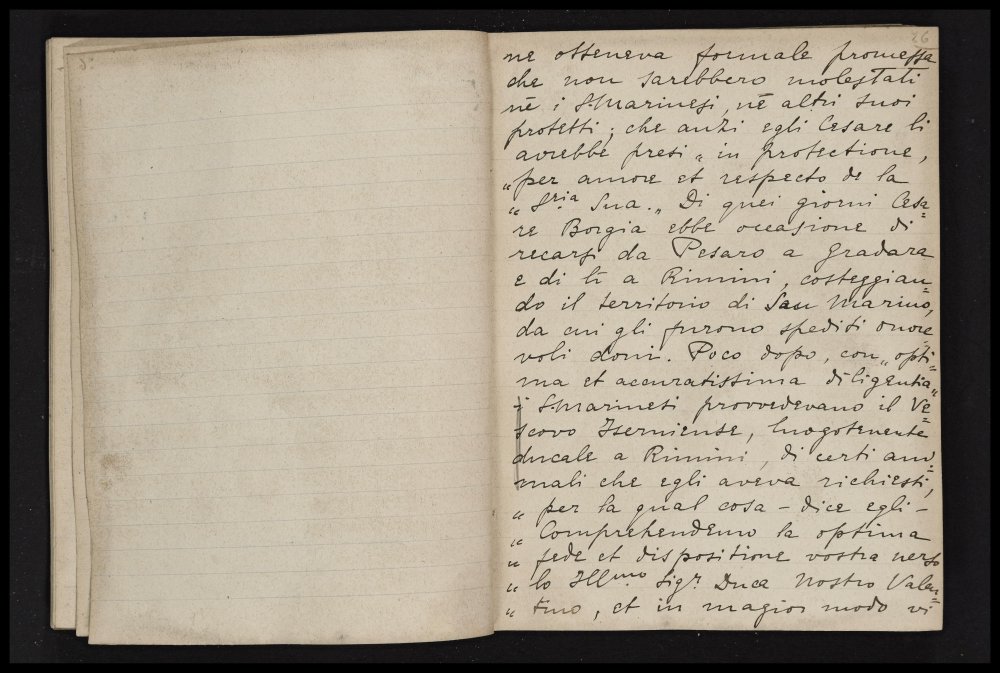 26
ne otteneva formale promessa
che non sarebbero molestati
nè i SMarinesi, nè altri suoi
protetti; che anzi egli Cesare li
avrebbe presi „ in protectione,
„ per amore et respecto de la
„ S.ria Sua.„ Di quei giorni Cesa=
re Borgia ebbe occasione di
recarsi da Pesaro a Gradara
e di lì a Rimini, costeggian=
do il territorio di San Marino,
da cui gli furono spediti onore=
voli doni. Poco dopo, con „ opti=
ma et accuratissima diligentia„
i SMarinesi provvedevano il Ve=
scovo Iserniense, luogotenente
ducale a Rimini, di certi ani=
mali che egli aveva richiesti,
„ per la qual cosa – dice egli –
„ Comprehendemo la optima
„ fede et dispositione vostra verso
„ lo Ill.mo Sig.r Duca Nostro Valen=
„ tino, et in magior modo vi